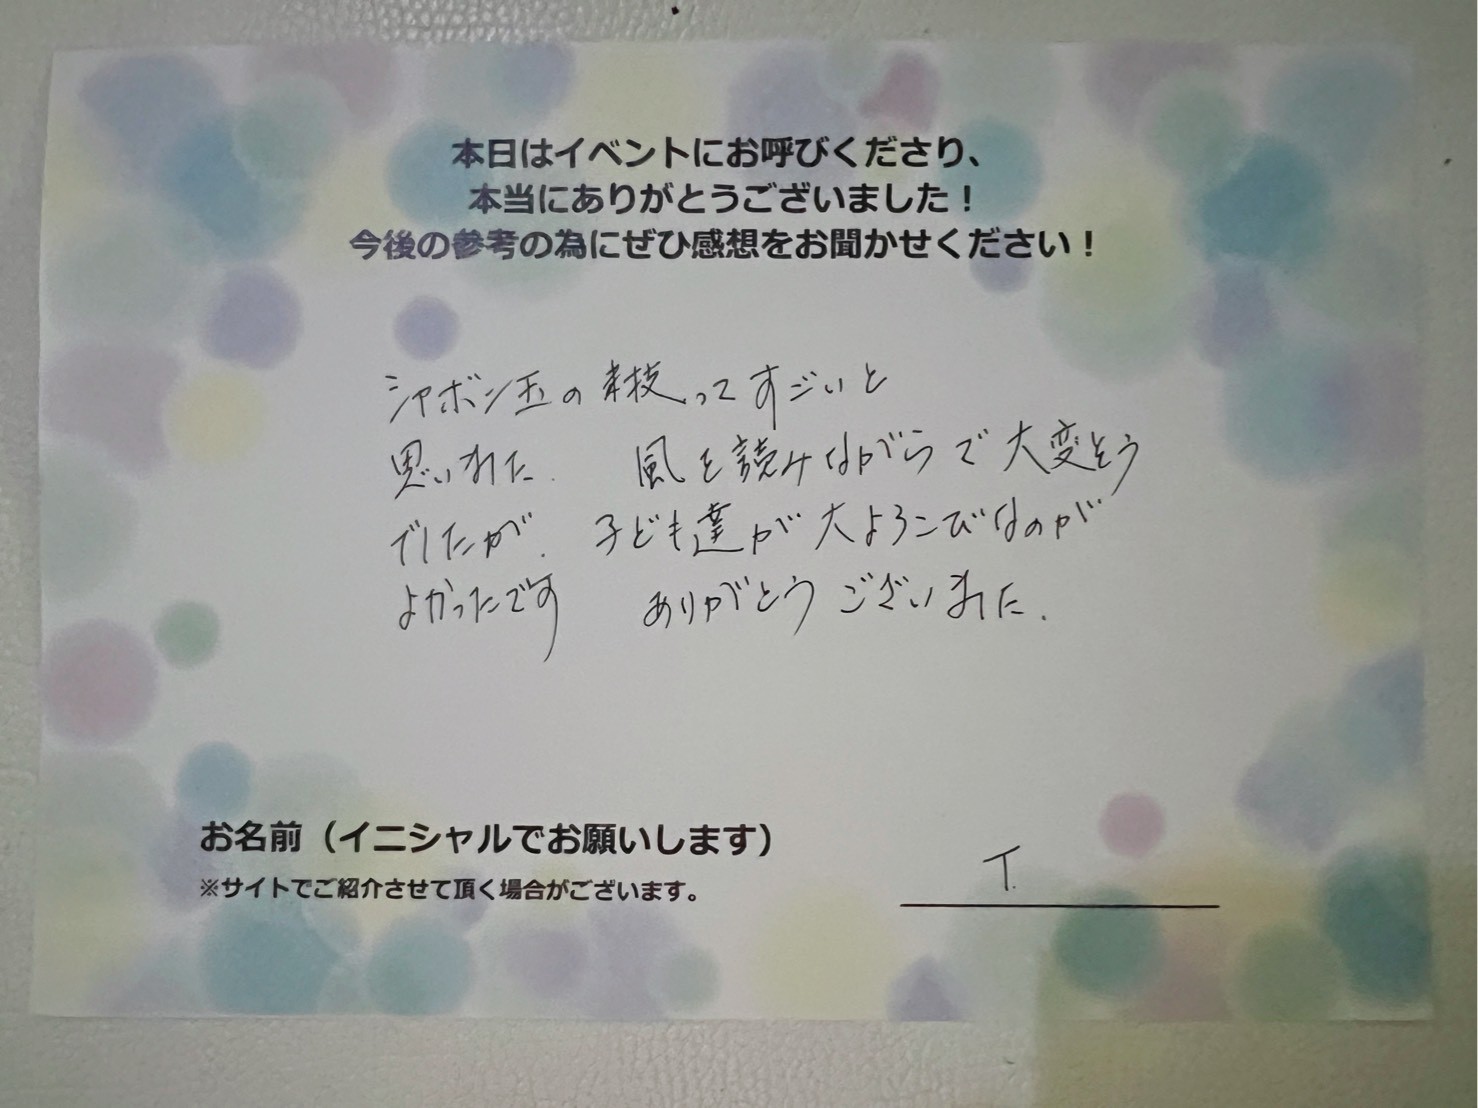 本日はイベントにお呼びくださり、
本当にありがとうございました！
今後の参考の為にぜひ感想をお聞かせください！
シャボン玉の技ってすごいと
思いました． 風を読みながらで大変そう
でしたが． 子ども達が大よろこびなのが
よかったです ありがとうございました．
お名前（イニシャルでお願いします）
※サイトでご紹介させて頂く場合がございます。
T.